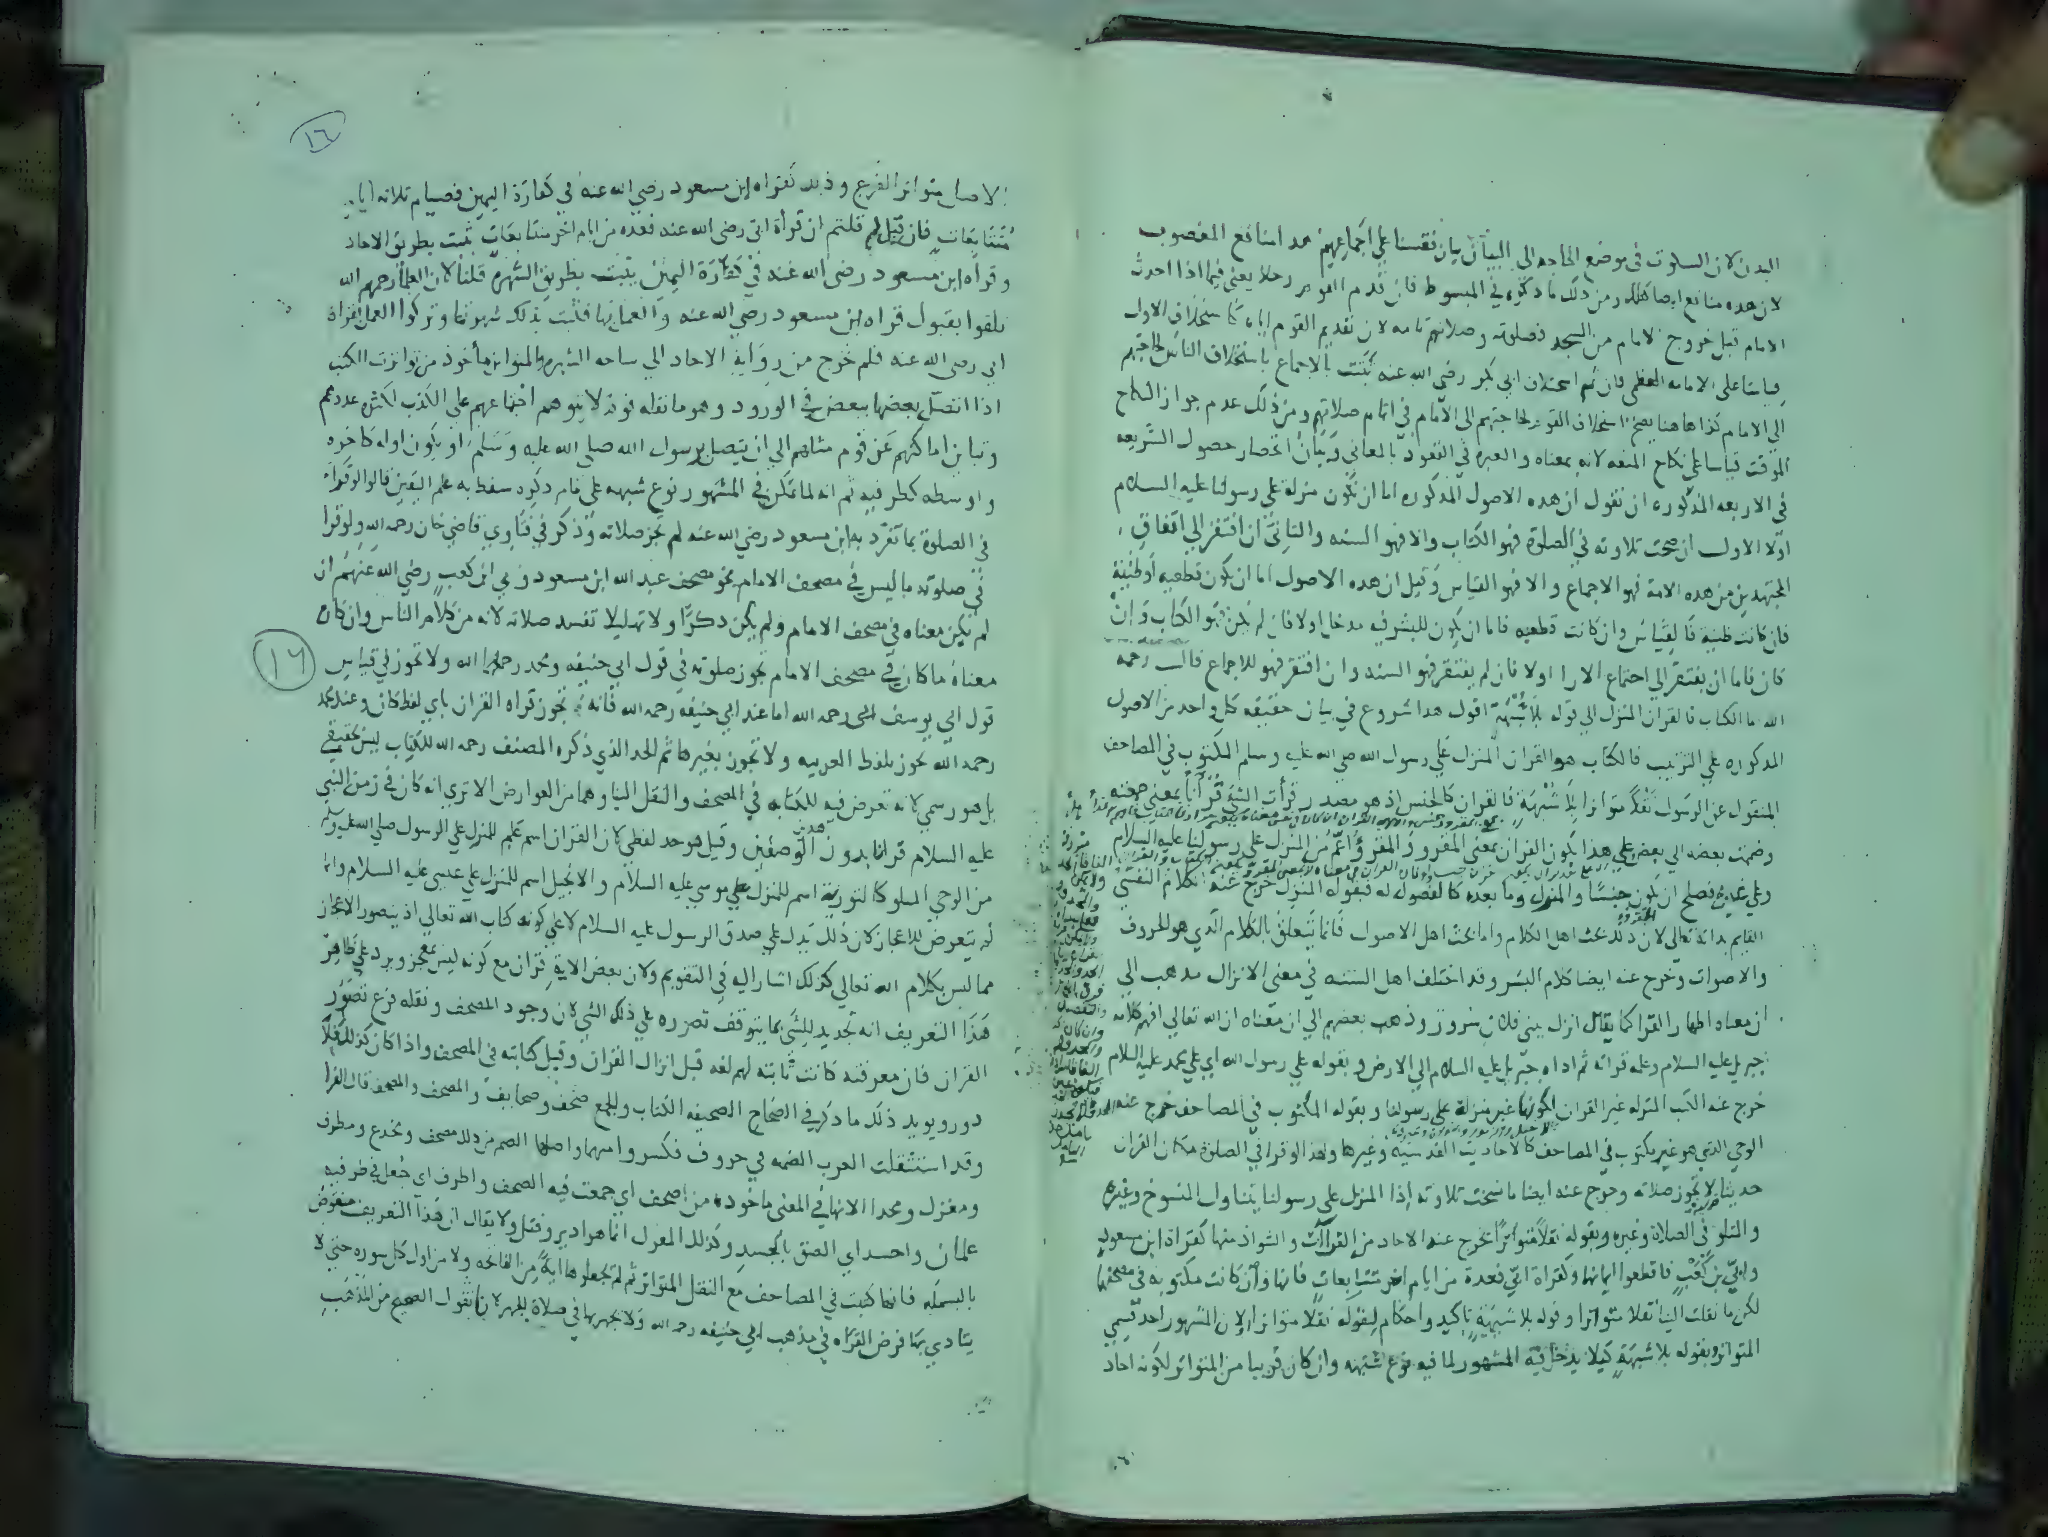 البدن لان السكوت في موضع الحاجة الى البيان بيان نقسنا على اجماعهم عدا منافع المغصوب
لان هذه منافع ايضا كذلك ومن ذلك ما ذكره في المبسوط فان قدم القوم رجلا يعني فيما اذا احدث
الامام قبل خروج الامام من المسجد فصلوته وصلاتهم تامه لان تقديم القوم اياه كاستخلاف الاول
قياسا على الامامه العظمى فان ثم استخلاف ابي بكر رضي الله عنه ثبتت بالاجماع باستخلاف الناس لحاجتهم
الى الامام كذا هاهنا يصح استخلاف القوم لحاجتهم الى الامام في اتمام صلاتهم ومن ذلك عدم جواز النكاح
الموقت قياسا على نكاح المتعه لانه بمعناه والعبره في العقود بالمعاني وبيان انحصار حصول الشريعه
في الاربعه المذكوره ان نقول ان هذه الاصول المذكوره اما ان تكون منزلة على رسولنا عليه السلام
اولا الاول ان صحت تلاوته في الصلوة فهو الكتاب والا فهو السنه والثاني ان افتقر الى اتفاق
المجتهدين من هذه الامة فهو الاجماع والا فهو القياس وقيل ان هذه الاصول اما ان تكون قطعيه او ظنية
فان كانت ظنية فالقياس وان كانت قطعيه فاما ان يكون للبشر فيه مدخل اولا فان لم يكن فهو الكتاب وان
كان فاما ان يفتقر الى اجتماع الارا اولا فان لم يفتقر فهو السنه وان افتقر فهو للاجماع قال رحمه
الله ما الكتاب فالقران المنزل الى قوله بلا شبهة اقول هذا شروع في بيان حقيقه كل واحد من الاصول
المذكوره على الترتيب فالكتاب هو القران المنزل على رسول الله صلى الله عليه وسلم المكتوب في المصاحف
المنقول عن الرسول نقلا متواترا بلا شبهة فالقران كالجنس اذ هو مصدر قرأت الشئ قرآنا بمعنى جمعته
وضممت بعضه الى بعض على هذا يكون القران بمعنى المقروء والمقروء اعم من المنزل على رسولنا عليه السلام
وعلى غيره فصلح ان يكون جنسا والمنزل وما بعده كالفصول له فبقوله المنزل خرج عنه الكلام النفسي
القايم بذاته تعالى لان ذلك بحث اهل الكلام واما بحث اهل الاصول فانما يتعلق بالكلام الذي هو الحروف
والاصوات وخرج عنه ايضا كلام البشر وقد اختلف اهل السنه في معنى الانزال مذهب الى
ان معناه اظهار القرا كما يقال انزل بني فلان سرور وذهب بعضهم الى ان معناه ان الله تعالى افهم كلامه
جبريل عليه السلام وعلمه قراته ثم اداه جبريل عليه السلام الى الارض وبقوله على رسول الله اي على محمد عليه السلام
خرج عنه الكتب المنزله غير القران لكونها غير منزلة على رسولنا وبقوله المكتوب في المصاحف خرج عنه
الوحي الذي هو غير مكتوب في المصاحف كالاحاديث القدسية وغيرها ولهذا لو قرا في الصلوة مكان القران
حديثا لا تجوز صلاته وخرج عنه ايضا ما نسخت تلاوته اذا المنزل على رسولنا يتناول المنسوخ وغيره
والمتلو في الصلاة وغيره وبقوله نقلا متواترا يخرج عنه الاحاد من القراآت والشواذ منها كقراة ابن مسعود
وابي بن كعب فاقطعوا ايمانهما وكقراة ابي فعدة من ايام اخر متتابعات فانها وان كانت مكتوبه في مصحفهما
لكن ما نقلت الينا نقلا متواترا وقوله بلا شبهة تاكيد واحكام لقوله نقلا متواترا لان المشهور احد قسمي
المتواتر وبقوله بلا شبهة كيلا يدخل فيه المشهور لما فيه نوع شبهه وان كان قريبا من المتواتر لكونه احاد
١٦
الاصل متواتر الفرع وذلك كقراه ابن مسعود رضي الله عنه في كفارة اليمين فصيام ثلاثه ايام
متتابعات فان قيل لم قلتم ان قرأة ابي رضي الله عنه فعده من ايام اخر متتابعات ثبت بطريق الاحاد
وقراه ابن مسعود رضي الله عنه في كفارة اليمين يثبت بطريق الشهره قلنا لان العلما رحمهم الله
تلقوا بقبول قراه ابن مسعود رضي الله عنه والعمل بها فثبت بذلك شهرتها وتركوا العمل بقراة
ابي رضي الله عنه فلم تخرج من رواية الاحاد الى ساحه الشهره والمتواتر مأخوذ من تواترت الكتب
اذا اتصل بعضها ببعض في الورود وهو ما نقله قوم لا يتوهم اجتماعهم على الكذب لكثرة عددهم
وتباين اماكنهم عن قوم مثلهم الى ان يتصل برسول الله صلى الله عليه وسلم او يكون اوله كاخره
واوسطه كطرفيه ثم انه لما تمكن في المشهور نوع شبهه على ما مر ذكره سقط به علم اليقين قالوا لو قراء
في الصلوة بما تفرد به ابن مسعود رضي الله عنه لم تجز صلاته وذكر في فتاوي قاضي خان رحمه الله ولو قرا
في صلوته ما ليس في مصحف الامام نحو مصحف عبد الله ابن مسعود وابي ابن كعب رضي الله عنهم ان
لم يكن معناه في مصحف الامام ولم يكن ذكرا ولا تهليلا تفسد صلاته لانه من كلام الناس وان كان
١٦
معناه ما كان في مصحف الامام تجوز صلوته في قول ابي حنيفه ومحمد رحمهما الله ولا تجوز في قياس
قول ابي يوسف رحمه الله اما عند ابي حنيفه رحمه الله فانه تجوز قراه القران باي لفظ كان وعند محمد
رحمه الله تجوز بلفظ العربيه ولا تجوز بغيرها ثم الحد الذي ذكره المصنف رحمه الله للكتاب ليس بحقيقي
بل هو رسمي لانه تعرض فيه للكتابه في المصحف والنقل الينا وهما من العوارض الا ترى انه كان في زمن النبي
عليه السلام قرانا بدون الوصفين وقيل هو حد لفظي لان القران اسم علم للمنزل على الرسول صلى الله عليه وسلم
من الوحي المتلو كالتورية اسم للمنزل على موسى عليه السلام والانجيل اسم للمنزل على عيسى عليه السلام وانما
لم يتعرض للاعجاز لان ذلك يدل على صدق الرسول عليه السلام لا على كونه كتاب الله تعالى اذ يتصور الاعجاز
مما ليس بكلام الله تعالى كذلك اشار اليه في التقويم ولان بعض الاية قران مع كونه ليس بمعجز ويرد على ظاهر
هذا التعريف انه تحديد للشئ بما يتوقف تصوره على ذلك الشي لان وجود المصحف ونقله فرع تصور
القران فان معرفته كانت ثابته لهم لغه قبل انزال القران وقيل كتابته في المصحف واذا كان كذلك فلا
دور ويويد ذلك ما ذكر في الصحاح الصحيفه الكتاب والجمع صحف وصحايف والمصحف والمصحف قال الفرا
وقد استثقلت العرب الضمه في حروف فكسروا ميمها واصلها الضم من ذلك مصحف ومخدع ومطرف
ومغزل ومجسد الانها في المعنى ماخوده من اصحف اي جمعت فيه الصحف واطرف اي جعل في طرفيه
علمان واجسد اي الصق بالجسد وكذلك المغزل انما هو ادير وفتل ولا يقال ان هذا التعريف منقوض
بالبسمله فانها كتبت في المصاحف مع النقل المتواتر ثم لم تجعلوها اية من الفاتحه ولا من اول كل سوره حتى لا
يتادى بها فرض القراه في مذهب ابي حنيفه رحمه الله ولا يجهر بها في صلاة الجهر لانا نقول الصحيح من المذهب